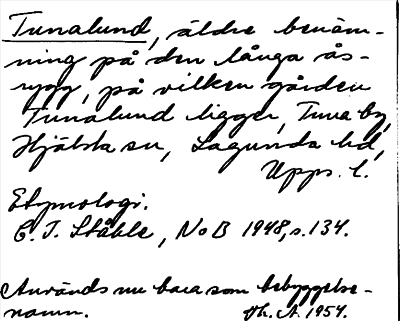 Tunalund, äldre benäm-
ning på den långa ås-
rygg, på vilken gården
Tunalund ligger, Tuna by,
Hjälsta sn, Lagunda hd,
Upps. l.
Etymologi.
C. I. Ståhle, NoB 1948, s. 134.
Används nu bara som bebyggelse-
namn. Vh. A. 1954.